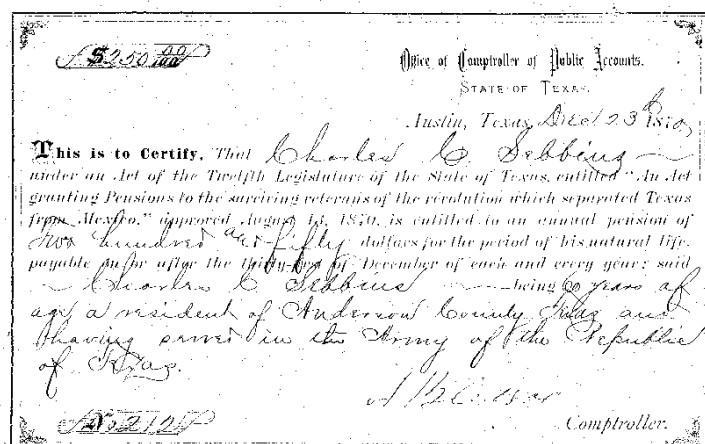 $250 00/100
Office of Comptroller of Public Accounts.
STATE OF TEXAS.
Austin, Texas, Dec 23d 1870
This is to Certify, That Charles C. Sebbins
under an Act of the Twelfth Legislature of the State of Texas, entitled "An Act
granting Pensions to the surviving veterans of the revolution which separated Texas
from Mexico," approved August 13, 1870, is entitled to an annual pension of
Two hundred and fifty dollars for the period of his natural life,
payable on or after the thirty-first of December of each and every year; said
Charles C Sebbins being 60 years of
age a resident of Anderson County Texas and
having served in the Army of the Republic
of Texas.
A
No 212
Comptroller.